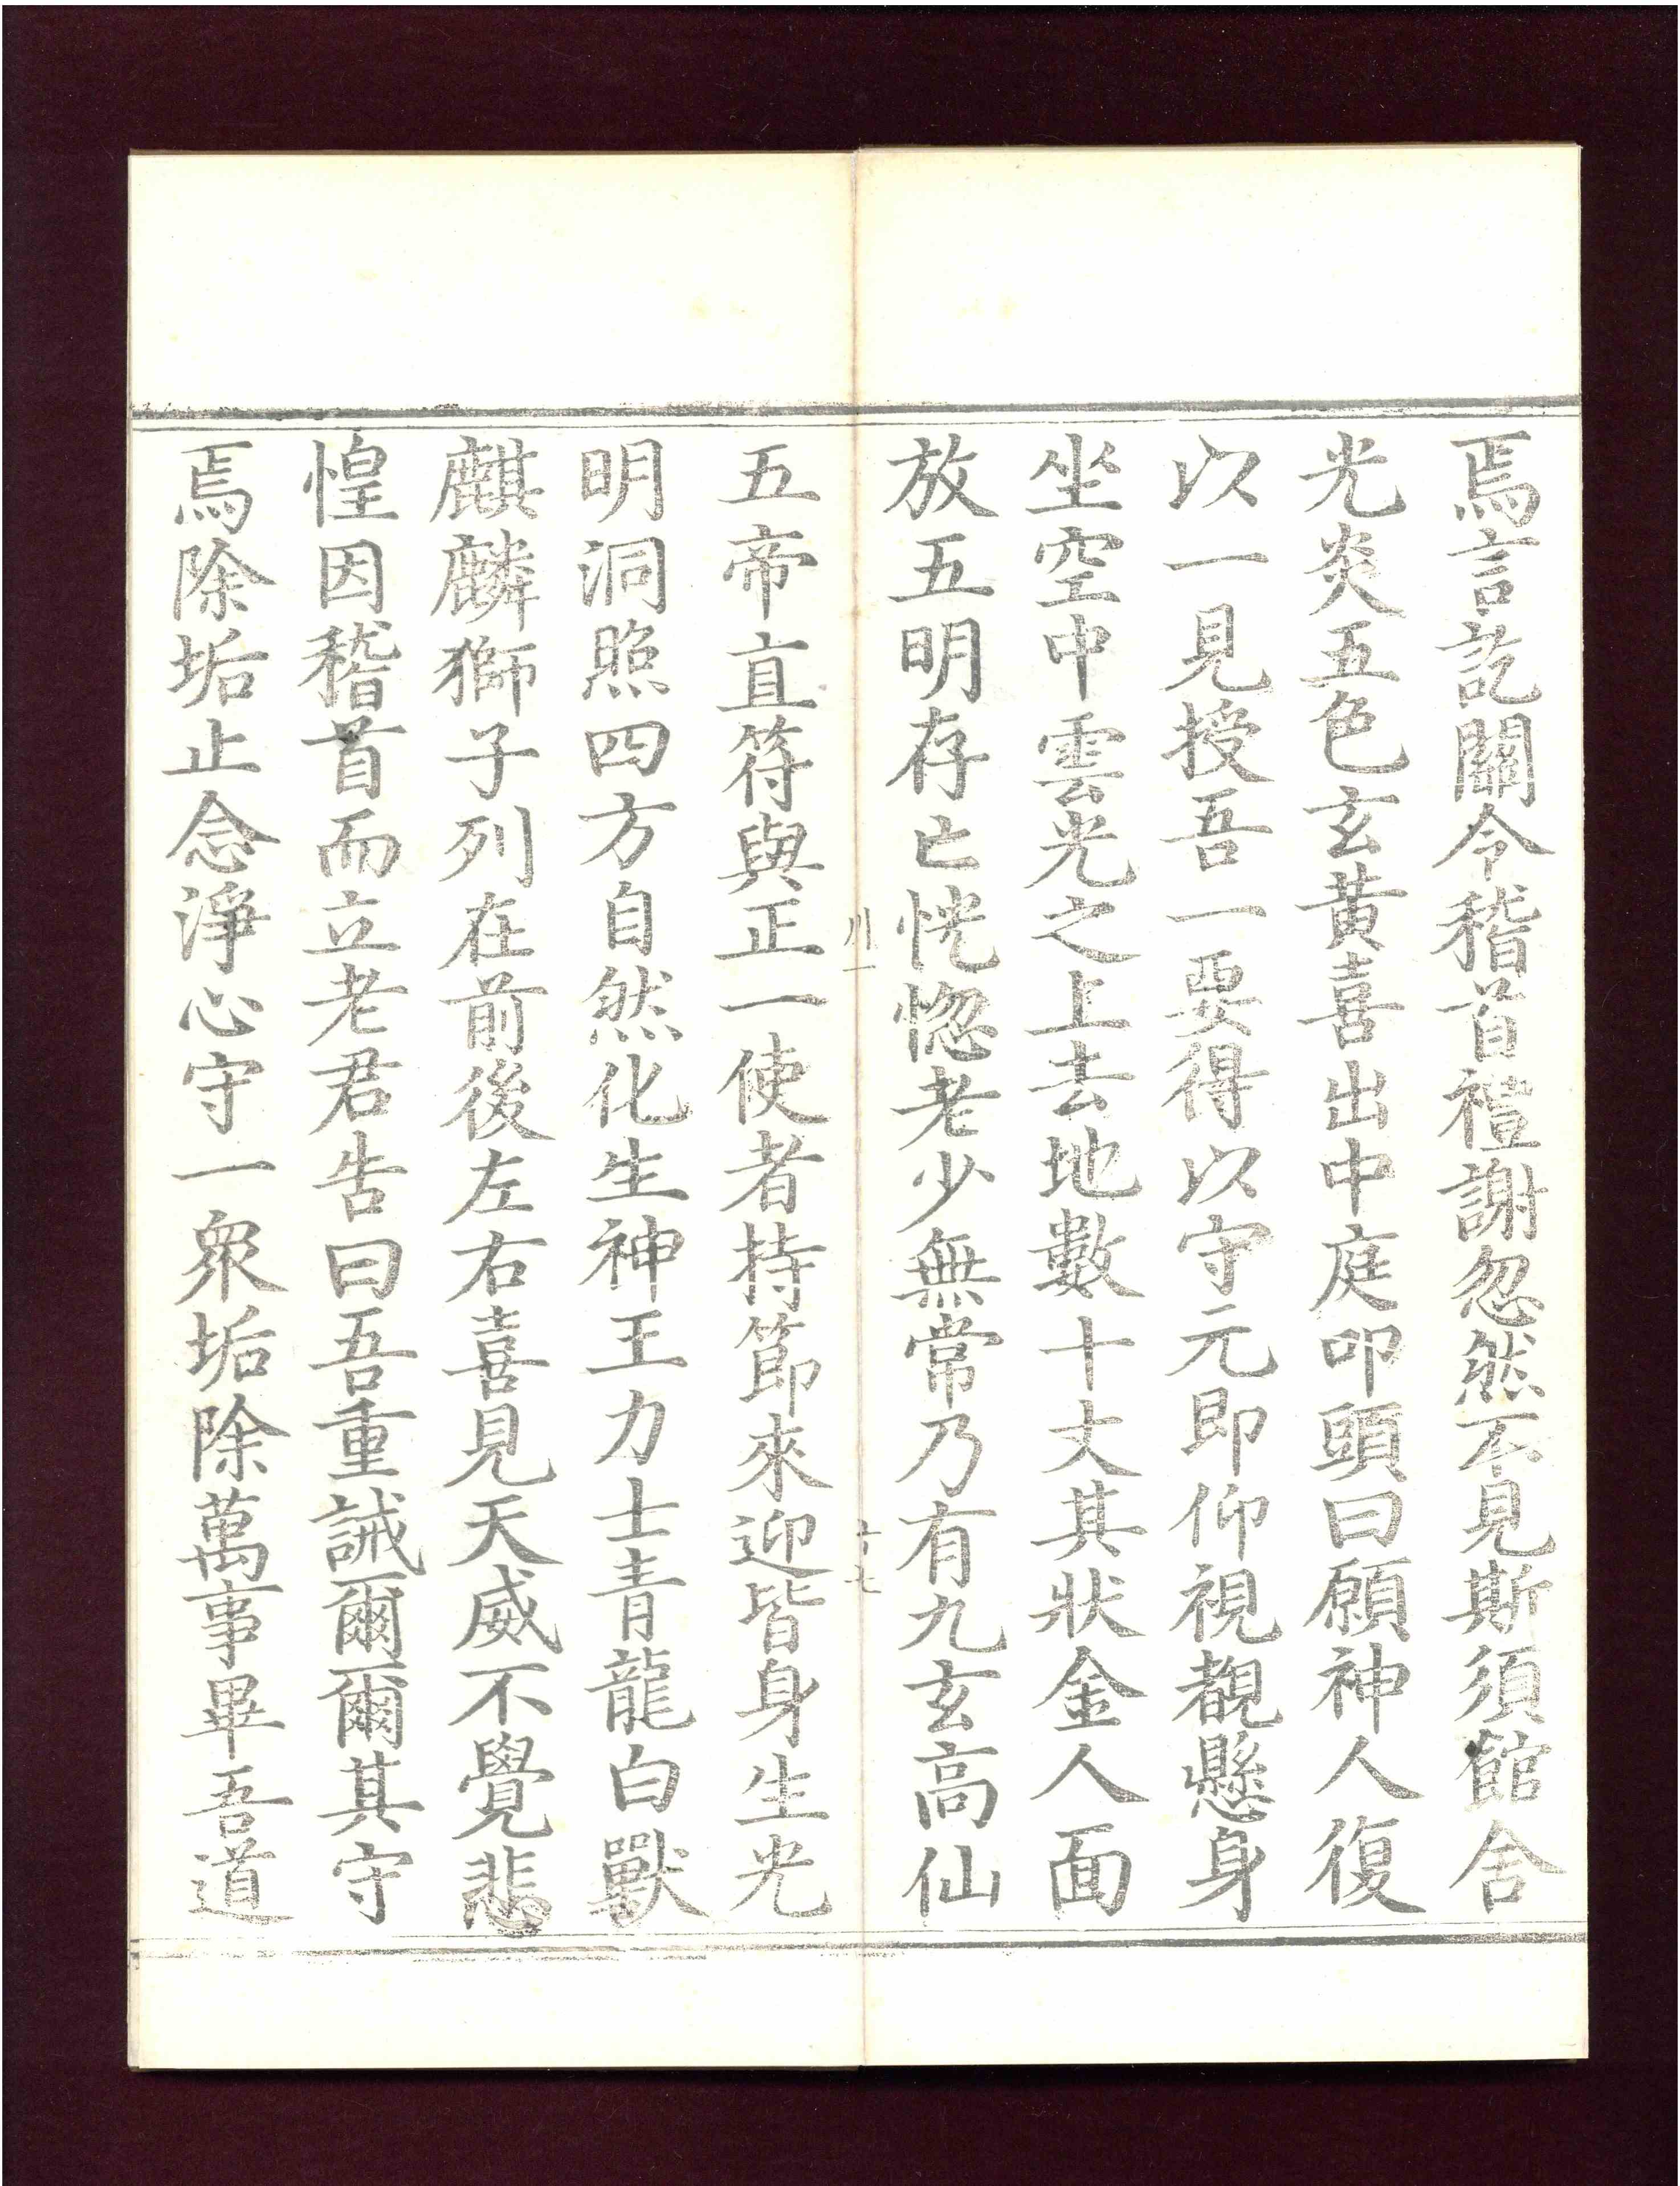 焉言訖關令稽首禮謝忽然不見斯須館舍
光炎五色玄黄喜出中庭叩頭曰願神人復
以一見授吾一要得以守元即仰視覩懸身
坐空中雲光之上去地數十丈其狀金人面
放五明存亡恍惚老少無常乃有九玄高仙
川一
十七
五帝直符與正一使者持節來迎皆身生光
明洞照四方自然化生神王力士青龍白獸
麒麟獅子列在前後左右喜見天威不覺悲
惶因稽首而立老君告曰吾重誡爾爾其守
焉除垢止念淨心守一衆垢除萬事畢吾道